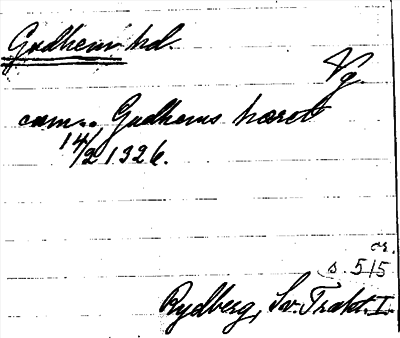 Gudhems hd.
Vg.
cum. Gudhems hæret
14/2 1326.
or.
(s. 515
Rydberg, Sv. Trakt. I.